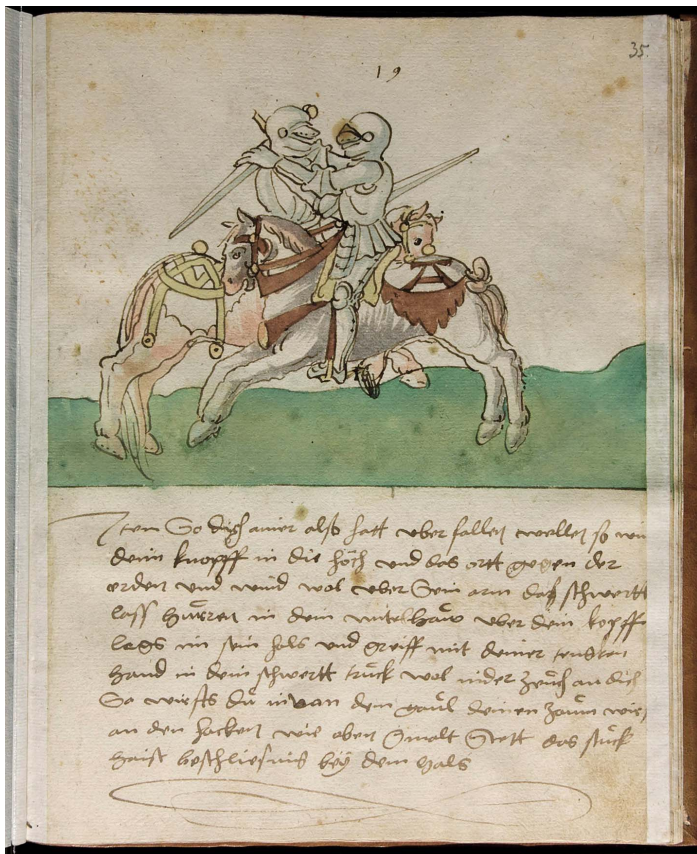 35
19
Item So dich ainer also hatt uber fallen wellen so
dein knopff in die höch und das ortt gegen der
erden und wind wol uber Sein arm das schwertt
lass in dem uber dem kopff
legs im sein hals und greiff mit deiner
hand in dein schwertt truck wol nider an dich
So wirffs du in van dem gaul deinen zaum
an den hacken wie oben Stett das stuck
haist beschliesnus bey dem hals